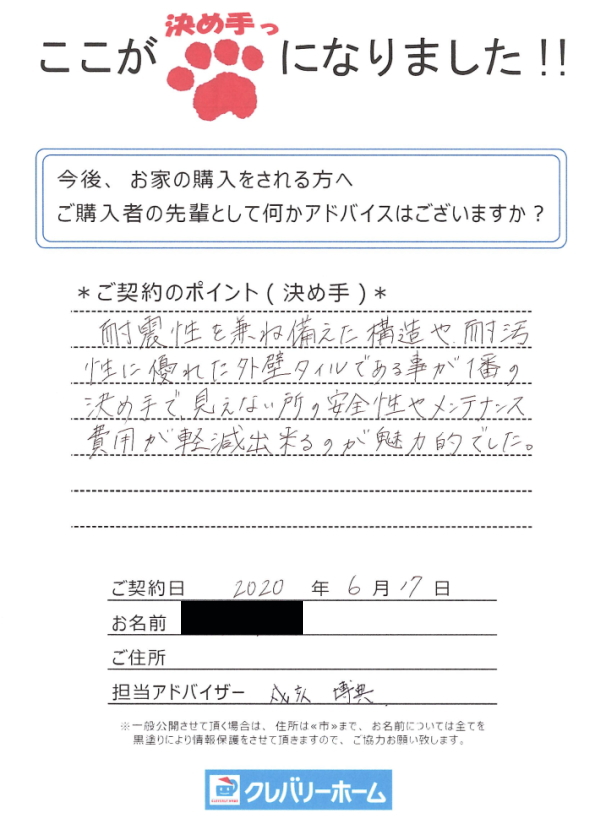 決め手っ
ここが になりました!!
今後、お家の購入をされる方へ
ご購入者の先輩として何かアドバイスはございますか?
*ご契約のポイント(決め手)*
耐震性を兼ね備えた構造や、耐汚
性に優れた外壁タイルである事が1番の
決め手で、見えない所の安全性やメンテナンス
費用が軽減出来るのが魅力的でした。
ご契約日 2020 年 6 月 17 日
お名前
ご住所
担当アドバイザー 博典
※一般公開させて頂く場合は、住所は≪市≫まで、お名前については全てを
黒塗りにより情報保護をさせて頂きますので、ご協力お願い致します。
クレバリーホーム